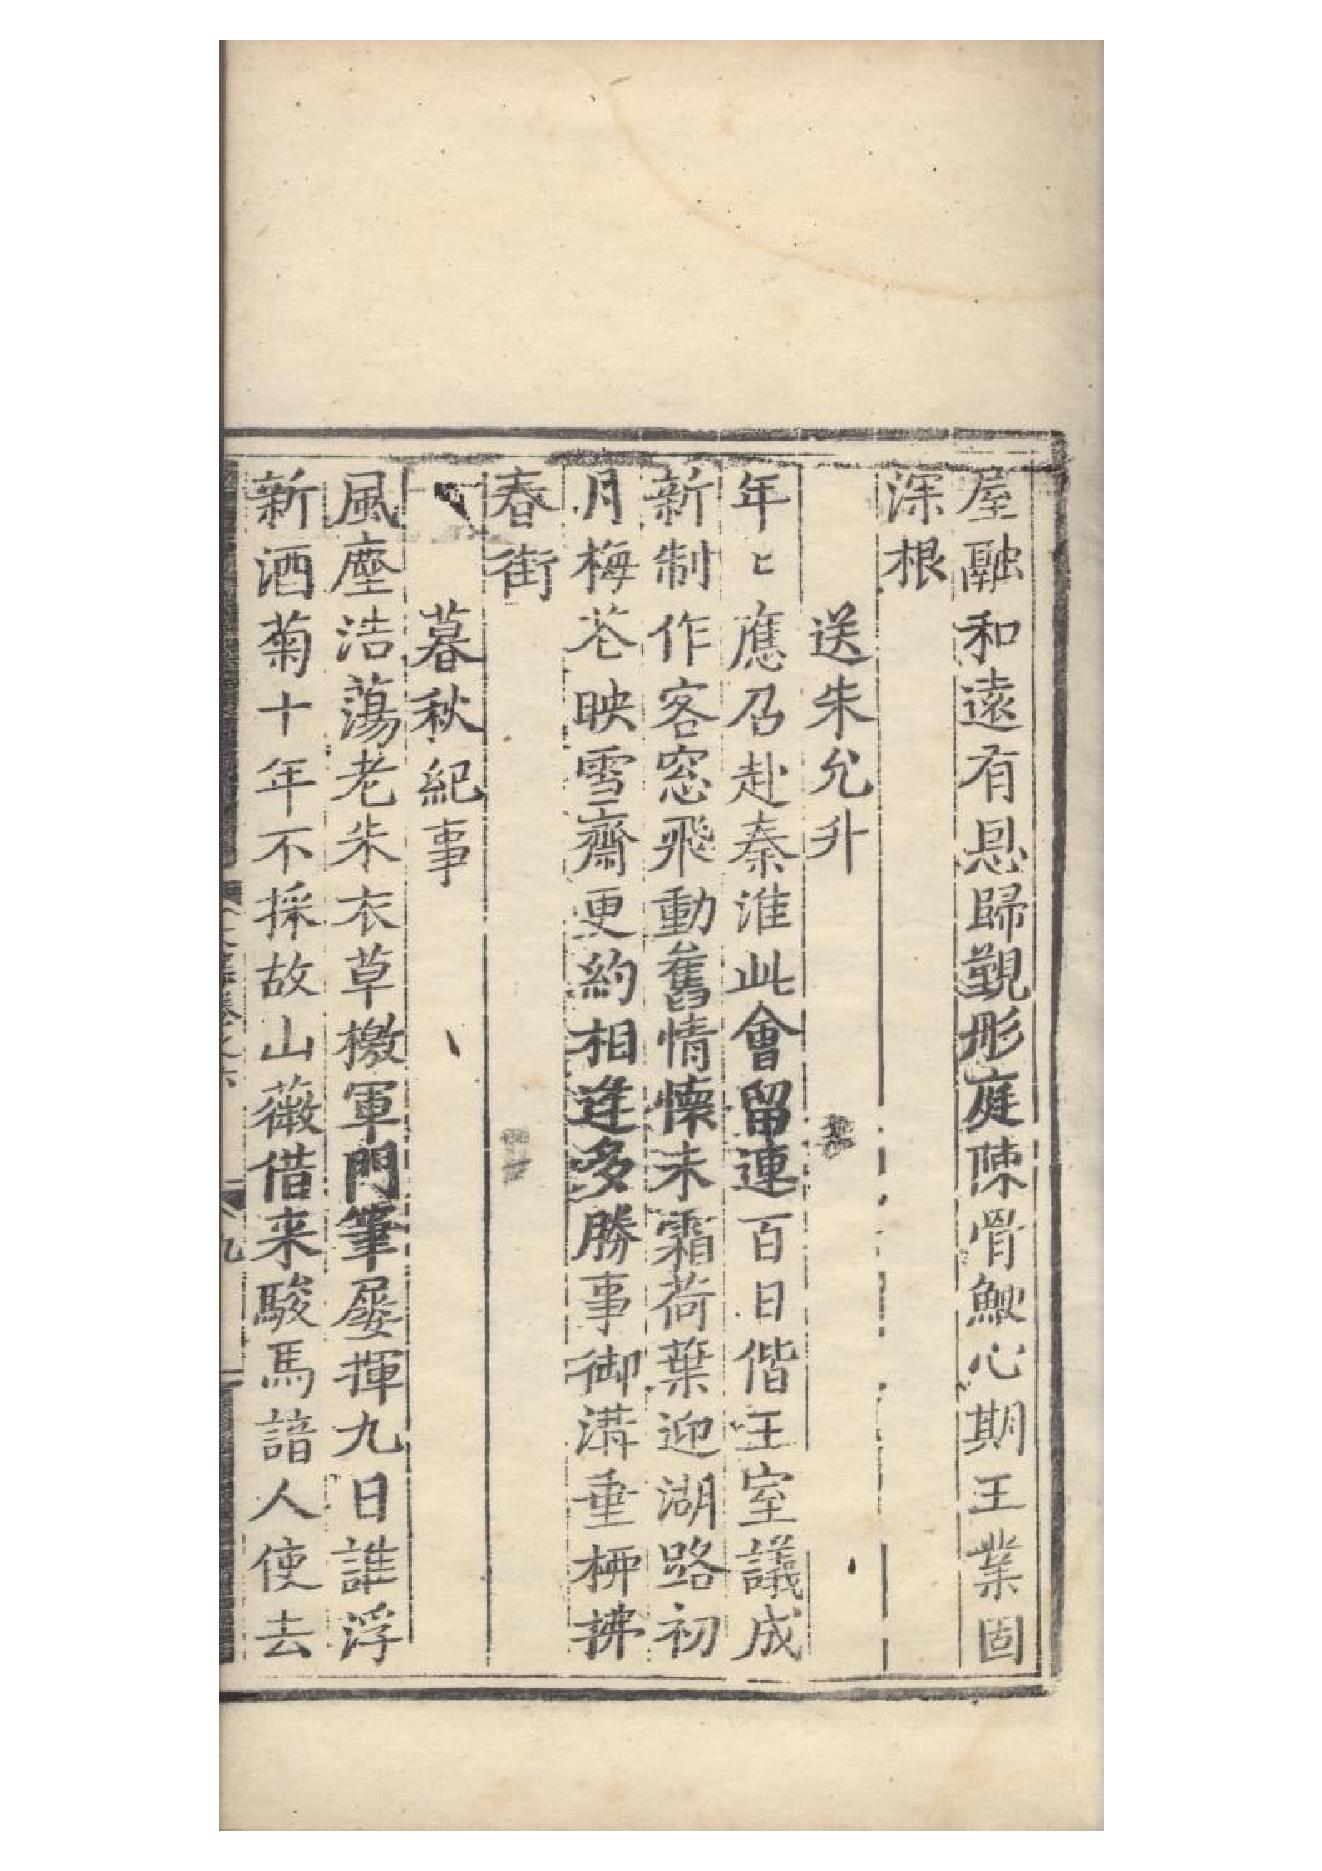 屋融和遠有恩歸覲彤庭陳骨鯁心期王業固
深根
送朱允升
年〻應乃赴秦淮此會留連百日偕王室議成
新制作客窓飛動舊情懐未霜荷葉迎湖路初
月梅花映雪齋更約相逢多勝事御溝垂栁拂
春街
暮秋紀事
風塵浩蕩老朱衣草檄軍門筆屡揮九日誰浮
新酒菊十年不採故山薇借来駿馬諳人使去
文集卷之六
九